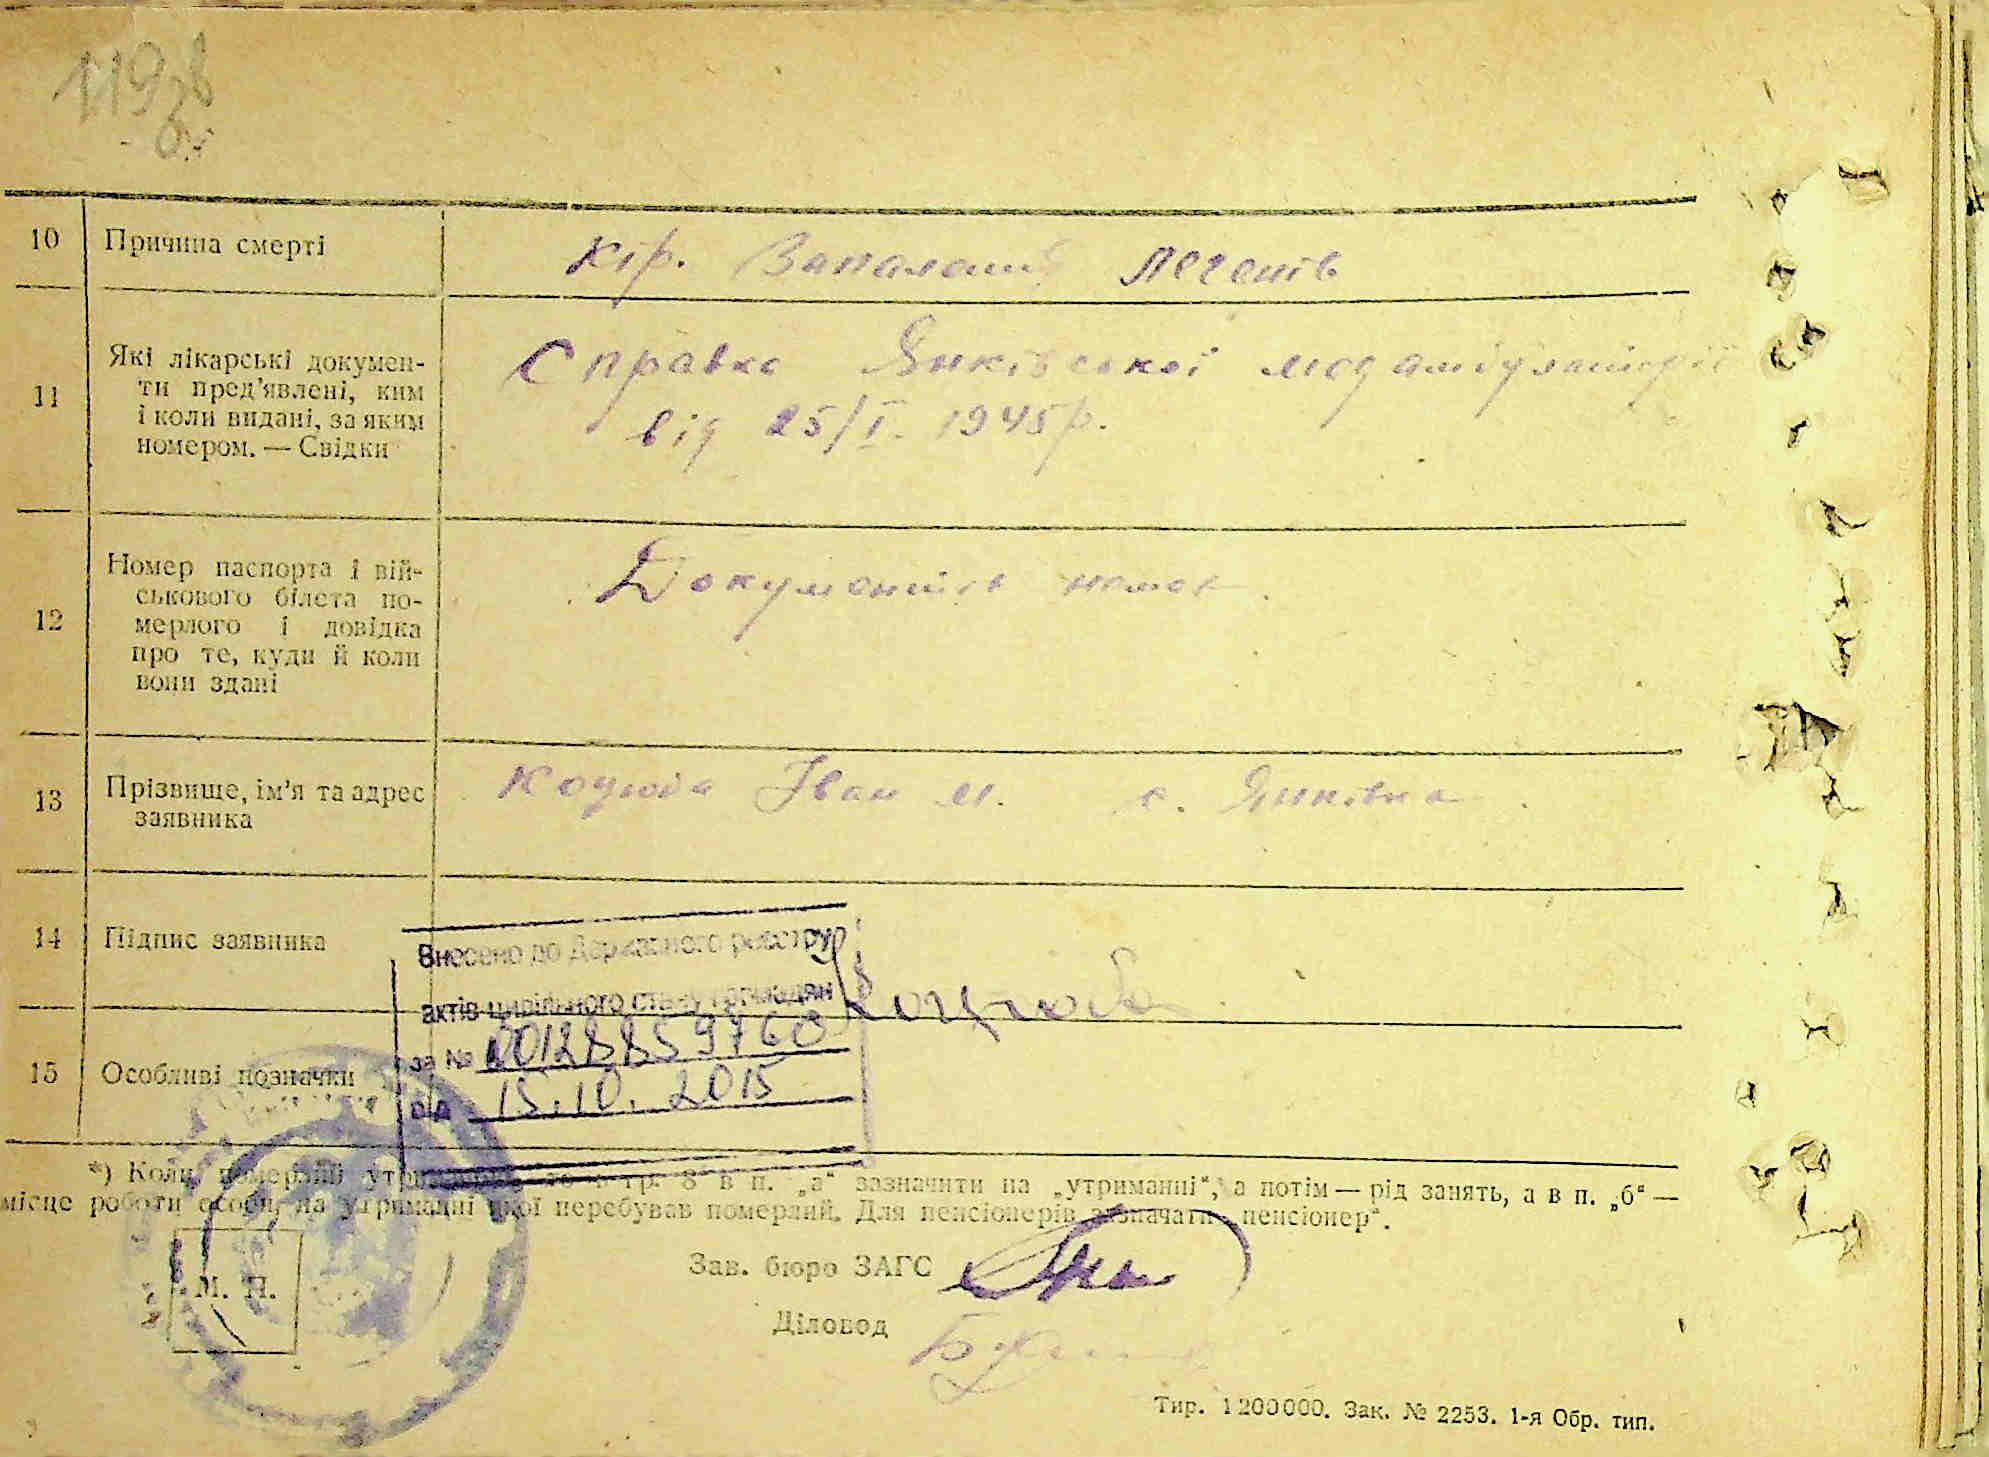 10 Причина смерті
кір. Запалення легенів
11 Які лікарські докумен-
ти пред'явлені, ким
і коли видані, за яким
номером. — Свідки
Справка Янківської
від 25/I. 1945р.
12 Номер паспорта і вій-
ськового білета по-
мерлого і довідка
про те, куди й коли
вони здані
Документів немає.
13 Прізвище, ім'я та адрес
заявника
Коцюба Іван М. с. Янківка
14 Підпис заявника
Коцюба
Внесено до Державного реєстру
актів цивільного стану громадян
за № 00128859760
від 15.10.2015
15 Особливі позначки
*) Коли померлий утриманець, то в гр. 8 в п. „а“ зазначити на „утриманні“, а потім — рід занять, а в п. „б“ —
місце роботи особи, на утриманні якої перебував померлий. Для пенсіонерів зазначати „пенсіонер“.
М. П.
Зав. бюро ЗАГС
Діловод
Тир. 1200000. Зак. № 2253. 1-я Обр. тип.